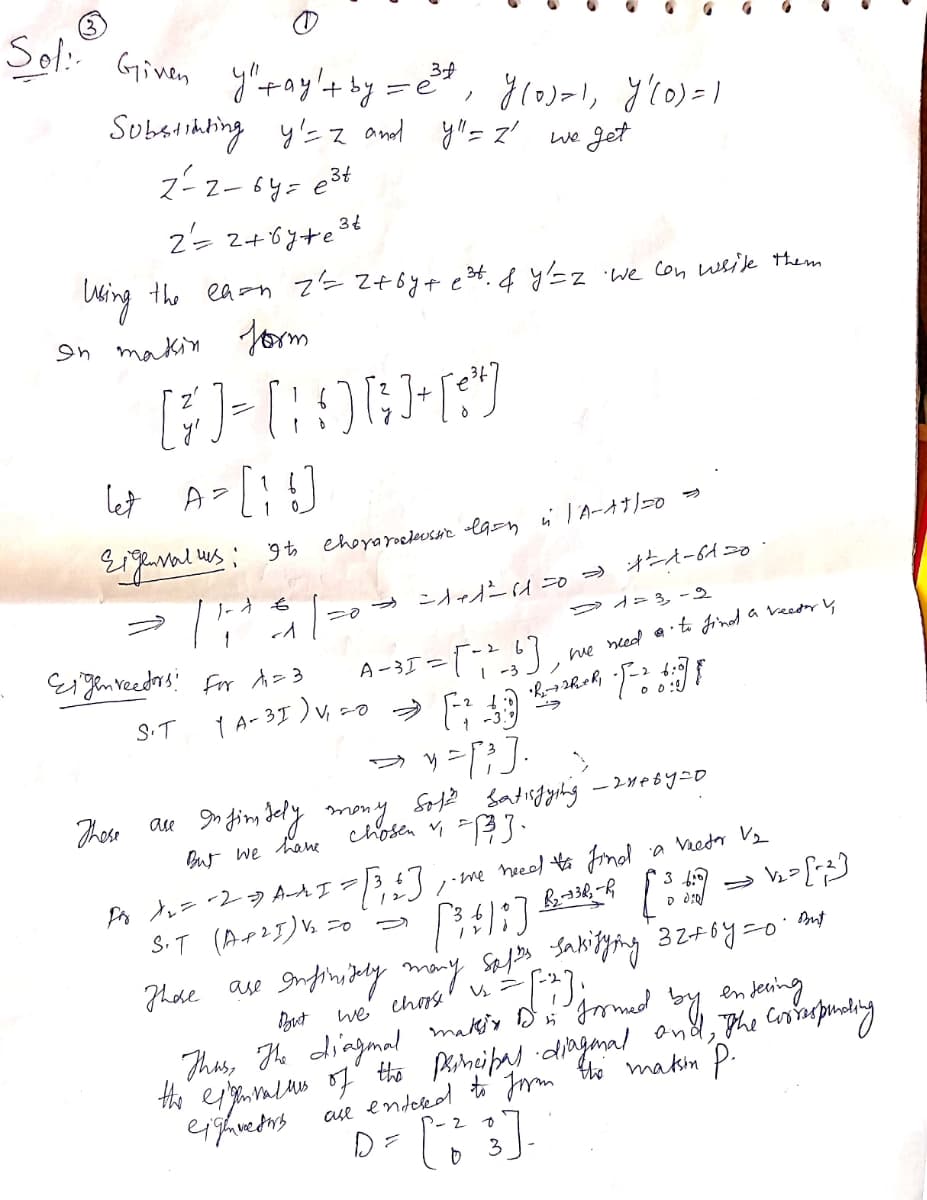 ③ ①
Sol:- Given y''+ay'+by = e^3t, y(0)=1, y'(0)=1
Substituting y'=z and y''=z' we get
z'-z-6y= e^3t
z'= z+6y+e^3t
Using the eqn z'= z+6y+e^3t & y'=z we can write them
In matrix form
[z' y'] = [1 6; 1 0] [z y] + [e^3t 0]
let A = [1 6; 1 0]
Eigenvalues: its characteristic eqn is |A-λI|=0 ⇒
⇒ |1-λ 6; 1 -λ| =0 ⇒ -λ+λ²-6λ=0 ⇒ λ²-λ-6λ=0
⇒ λ=3, -2
Eigenvectors: For λ=3 A-3I = [-2 6; 1 -3], we need to find a vector v₁
S.T (A-3I)v₁=0 ⇒ [-2 6:0; 1 -3:0] R₂→2R₂+R₁ [-2 6:0; 0 0:0]
⇒ v₁ = [3 1].
These are Infinitely many Sol^n Satisfying -2x+6y=0
But we have chosen v₁ = [3 1].
For λ₂=-2 ⇒ A-λI = [3 6; 1 2], we need to find a vector V₂
S.T (A+2I)V₂=0 ⇒ [3 6|0; 1 2|0] R₂→3R₂-R₁ [3 6:0; 0 0:0] ⇒ V₂=[-2 1]
These are Infinitely many Sol^ns satisfying 3z+6y=0. But
But we choose V₂ = [-2 1].
Thus, The diagonal matrix D is formed by entering
the eigenvalues of the principal diagonal and, The Corresponding
eigenvectors are entered to form the matrix P.
D = [-2 0; 0 3].